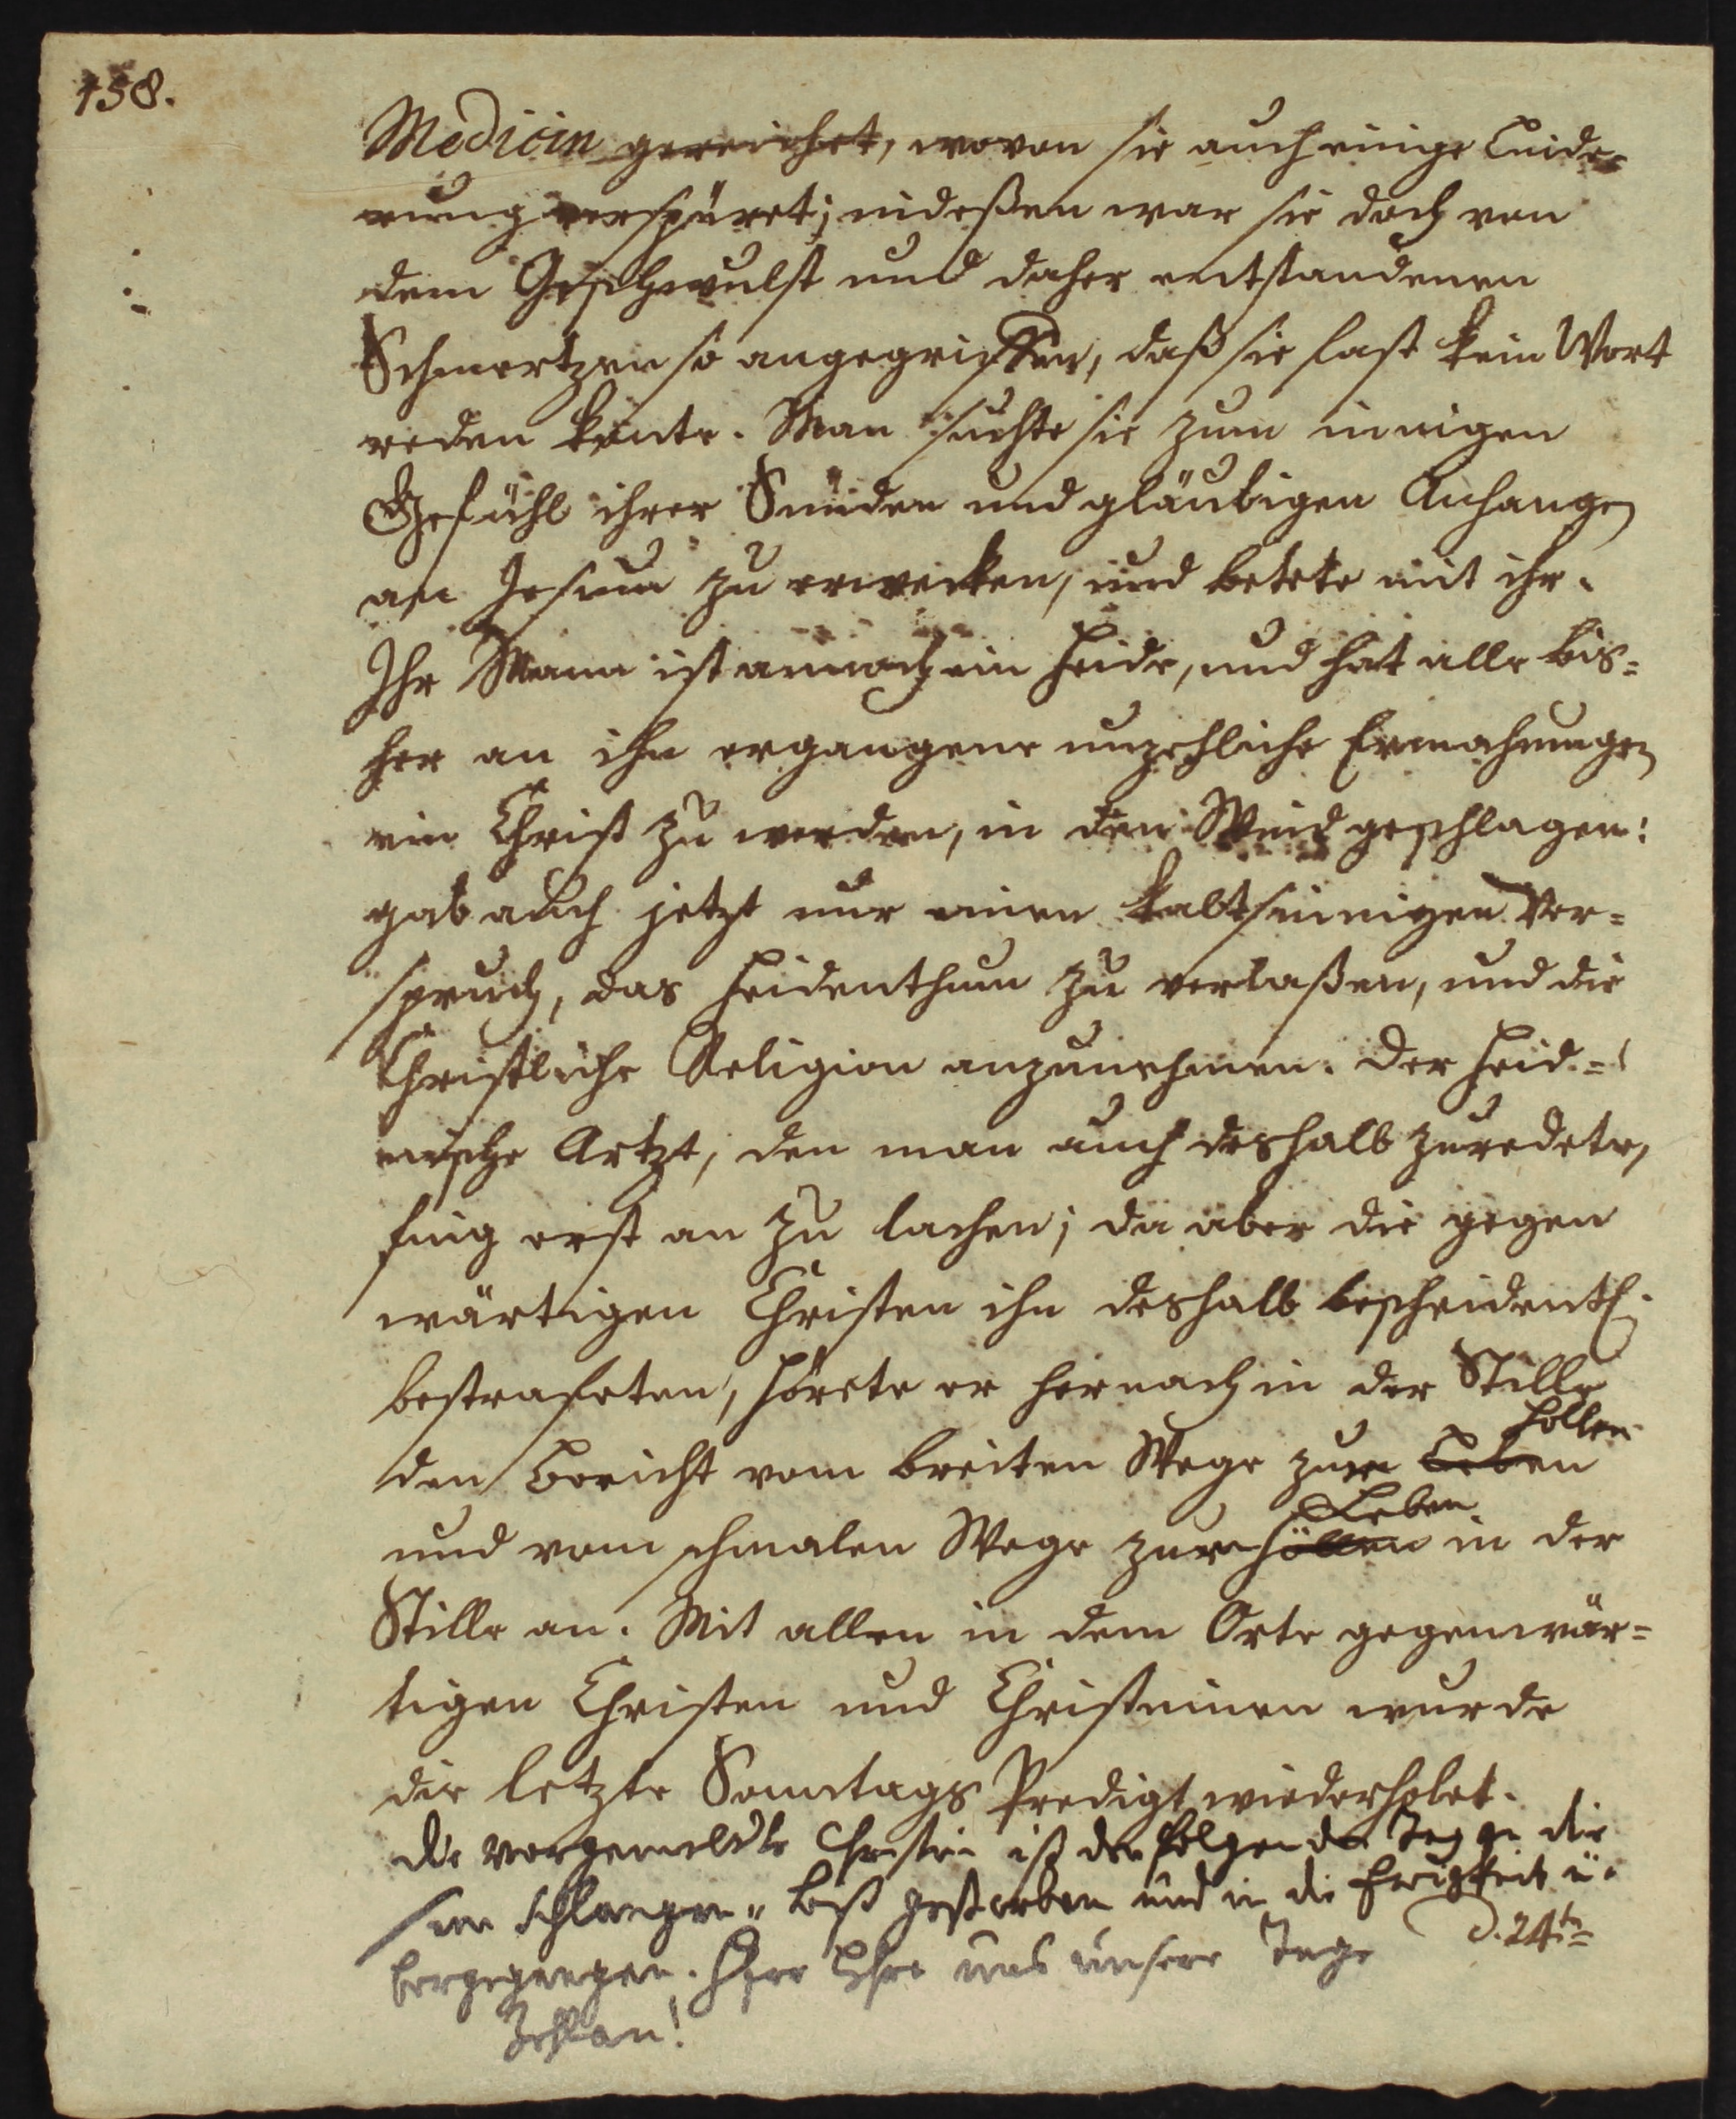 158.
Medicin gereichet, wovon sie auch einige Linde=
rung verspüret; indeßen war sie doch von
dem Geschwulst und daher entstandenen
Schmertzen so angegriffen, daß sie fast kein Wort
reden konte. Man suchte sie zum innigen
Gefühl ihrer Sünden und gläubigen Anhangen
an Jesum zu erwecken, und betete mit ihr.
Ihr Mann ist annoch ein Heide, und hat alle bis=
her an ihn ergangene unzehliche Ermahnungen
ein Christ zu werden, in den Wind geschlagen:
gab auch jetzt nur einen kaltsinnigen Ver=
spruch, das Heidenthum zu verlaßen, und die
Christliche Religion anzunehmen. Der Heid=
nische Artzt, den man auch deshalb zuredete,
fing erst an zu lachen; da aber die gegen
wärtigen Christen ihn deshalb bescheidentl.
bestrafeten, hörete er hernach in der Stille
den Bericht vom breiten Wege zur Leben Höllen
und vom schmalen Wege zum Höllen Leben in der
Stille an. Mit allen in dem Orte gegenwär=
tigen Christen und Christinnen wurde
die letzte Sonntags Predigt wiederholet.
Die vorgemeldte Christin ist den folgenden Tag an die
sem Schlangen= biß gestorben und in die Ewigkeit ü=
bergegangen. Herr Lehre uns unsere Tage
d. 24ten
Zehlen!